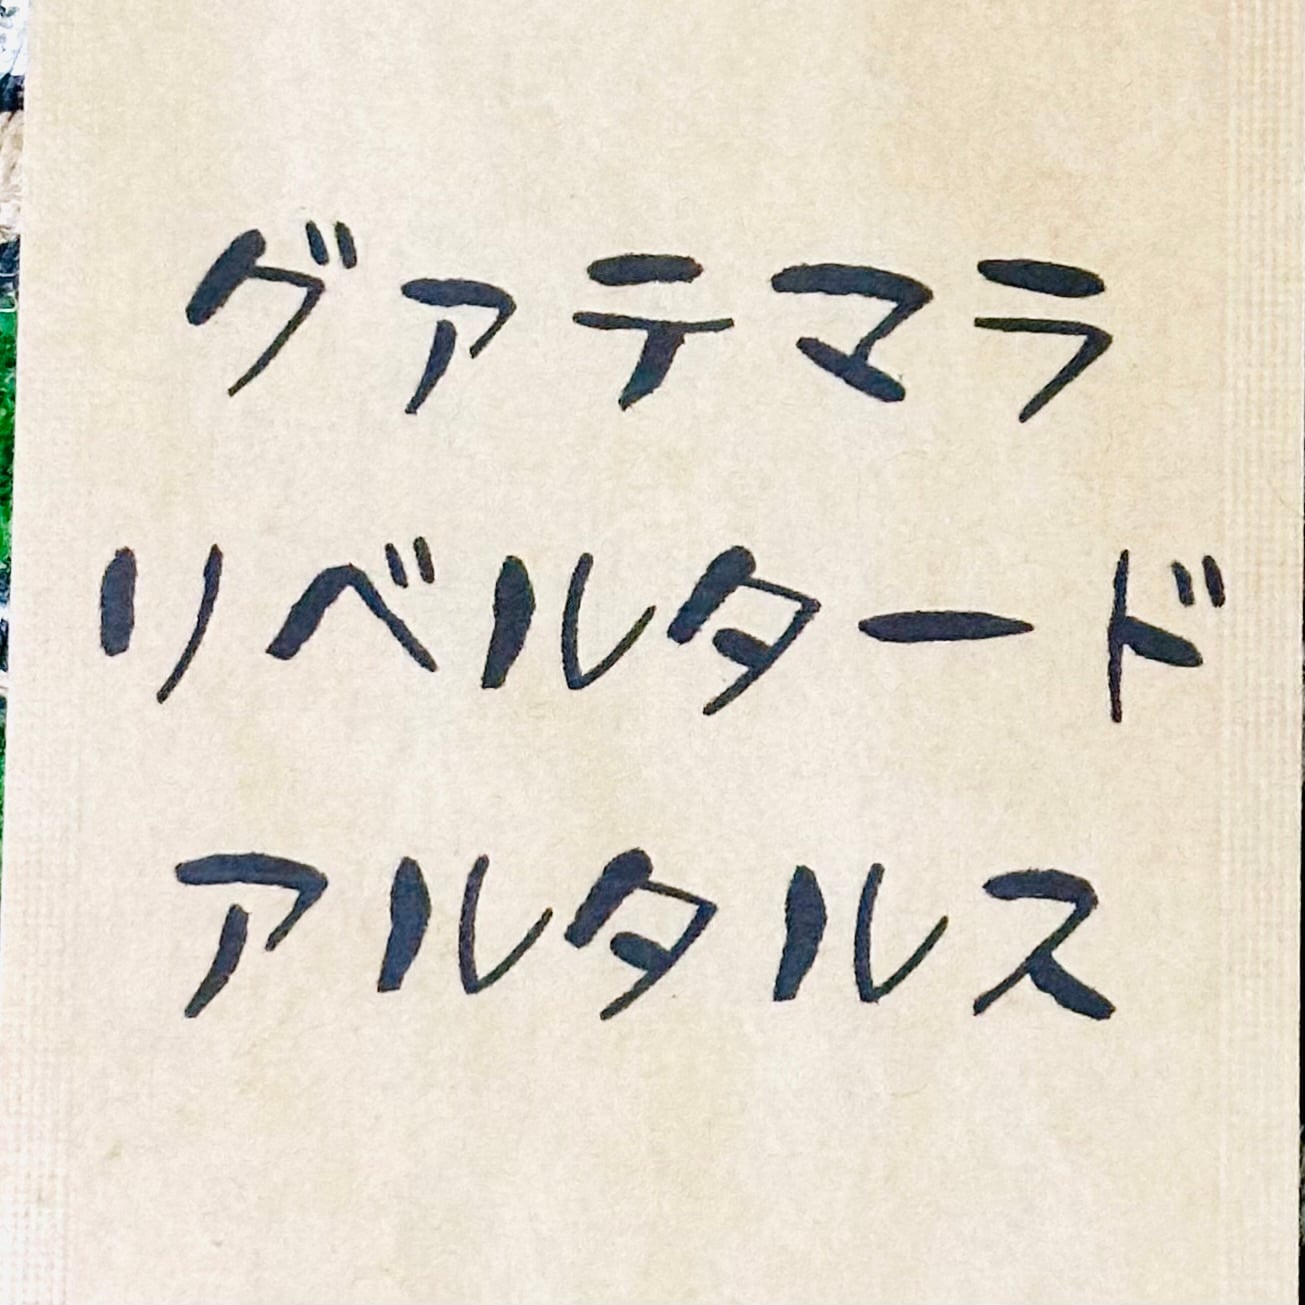 グァテマラ
リベルタード
アルタルス